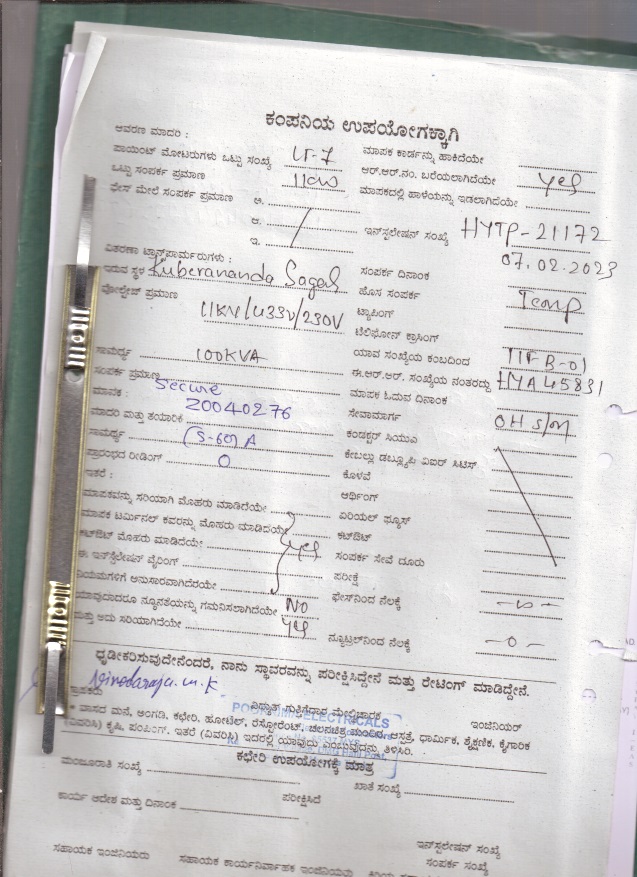 ಕಂಪನಿಯ ಉಪಯೋಗಕ್ಕಾಗಿ
ಆವರಣ ಮಾದರಿ :
ಪಾಯಿಂಟ್ ಮೋಟರುಗಳು ಒಟ್ಟು ಸಂಖ್ಯೆ LT-7
ಒಟ್ಟು ಸಂಪರ್ಕ ಪ್ರಮಾಣ 11kw
ಫೇಸ್ ಮೇಲೆ ಸಂಪರ್ಕ ಪ್ರಮಾಣ ಅ.
ಆ.
ಇ.
ವಿತರಣಾ ಟ್ರಾನ್ಸ್‌ಫಾರ್ಮರುಗಳು :
ಇರುವ ಸ್ಥಳ Kuberananda Sagar
ವೋಲ್ಟೇಜ್ ಪ್ರಮಾಣ 11KV/433V/230V
ಸಾಮರ್ಥ್ಯ 100KVA
ಸಂಪರ್ಕ ಪ್ರಮಾಣ
ಮಾಪಕ : Secure
20040276
ಮಾದರಿ ಮತ್ತು ತಯಾರಿಕೆ
ಸಾಮರ್ಥ್ಯ (5-60) A
ಪ್ರಾರಂಭದ ರೀಡಿಂಗ್ 0
ಇತರೆ :
ಮಾಪಕವನ್ನು ಸರಿಯಾಗಿ ಮೊಹರು ಮಾಡಿದೆಯೇ
ಮಾಪಕ ಟರ್ಮಿನಲ್ ಕವರನ್ನು ಮೊಹರು ಮಾಡಿದೆಯೇ
ಕಟ್‌ಔಟ್ ಮೊಹರು ಮಾಡಿದೆಯೇ yes
ಈ ಇನ್‌ಸ್ಟಲೇಷನ್ ವೈರಿಂಗ್
ನಿಯಮಗಳಿಗೆ ಅನುಸಾರವಾಗಿದೆಯೇ
ಯಾವುದಾದರೂ ನ್ಯೂನತೆಯನ್ನು ಗಮನಿಸಲಾಗಿದೆಯೇ NO
ಮತ್ತು ಅದು ಸರಿಯಾಗಿದೆಯೇ yes
ಮಾಪಕ ಕಾರ್ಡನ್ನು ಹಾಕಿದೆಯೇ
ಆರ್.ಆರ್.ನಂ. ಬರೆಯಲಾಗಿದೆಯೇ yes
ಮಾಪಕದಲ್ಲಿ ಹಾಳೆಯನ್ನು ಇಡಲಾಗಿದೆಯೇ
ಇನ್‌ಸ್ಟಲೇಷನ್ ಸಂಖ್ಯೆ HYTP-21172
07.02.2023
ಸಂಪರ್ಕ ದಿನಾಂಕ
ಹೊಸ ಸಂಪರ್ಕ Temp
ಟ್ಯಾಪಿಂಗ್
ಟೆಲಿಫೋನ್ ಕ್ರಾಸಿಂಗ್
ಯಾವ ಸಂಖ್ಯೆಯ ಕಂಬದಿಂದ
ಈ.ಆರ್.ಆರ್. ಸಂಖ್ಯೆಯ ನಂತರದ್ದು
ಮಾಪಕ ಓದುವ ದಿನಾಂಕ
ಸೇವಾಮಾರ್ಗ OH
ಕಂಡಕ್ಟರ್ ಸಿಯುಎ
ಕೇಬಲ್ಲು ಡಬ್ಲ್ಯೂಪಿ ವಿಐರ್ ಸಿಟಿಸ್
ಕೊಳವೆ
ಆರ್ಥಿಂಗ್
ಏರಿಯಲ್ ಫ್ಯೂಸ್
ಕಟ್‌ಔಟ್
ಸಂಪರ್ಕ ಸೇವೆ ದೂರು
ಪರೀಕ್ಷೆ
ಫೇಸ್‌ನಿಂದ ನೆಲಕ್ಕೆ
ನ್ಯೂಟ್ರಲ್‌ನಿಂದ ನೆಲಕ್ಕೆ -0-
ಧೃಡೀಕರಿಸುವುದೇನೆಂದರೆ, ನಾನು ಸ್ಥಾವರವನ್ನು ಪರೀಕ್ಷಿಸಿದ್ದೇನೆ ಮತ್ತು ರೇಟಿಂಗ್ ಮಾಡಿದ್ದೇನೆ.
Vinodaraja.m.k
ಗ್ರಾಹಕರು ವಿದ್ಯುತ್ ಗುತ್ತಿಗೆದಾರ ಮೇಲ್ವಿಚಾರಕ ಇಂಜಿನಿಯರ್
ELECTRICALS
* ವಾಸದ ಮನೆ, ಅಂಗಡಿ, ಕಛೇರಿ, ಹೋಟೆಲ್, ರೆಸ್ಟೋರೆಂಟ್, ಚಲನಚಿತ್ರ ಮಂದಿರ, ಆಸ್ಪತ್ರೆ, ಧಾರ್ಮಿಕ, ಶೈಕ್ಷಣಿಕ, ಕೈಗಾರಿಕ
(ವಿವರಿಸಿ) ಕೃಷಿ, ಪಂಪಿಂಗ್, ಇತರೆ (ವಿವರಿಸಿ) ಇದರಲ್ಲಿ ಯಾವುದು ಎಂಬುವುದನ್ನು ತಿಳಿಸಿರಿ.
ಕಛೇರಿ ಉಪಯೋಗಕ್ಕೆ ಮಾತ್ರ
ಮಂಜೂರಾತಿ ಸಂಖ್ಯೆ ಖಾತೆ ಸಂಖ್ಯೆ
ಕಾರ್ಯ ಆದೇಶ ಮತ್ತು ದಿನಾಂಕ ಪರೀಕ್ಷಿಸಿದೆ
ಇನ್‌ಸ್ಟಲೇಷನ್ ಸಂಖ್ಯೆ
ಸಂಪರ್ಕ ಸಂಖ್ಯೆ
ಸಹಾಯಕ ಇಂಜಿನಿಯರು ಸಹಾಯಕ ಕಾರ್ಯನಿರ್ವಾಹಕ ಇಂಜಿನಿಯರು